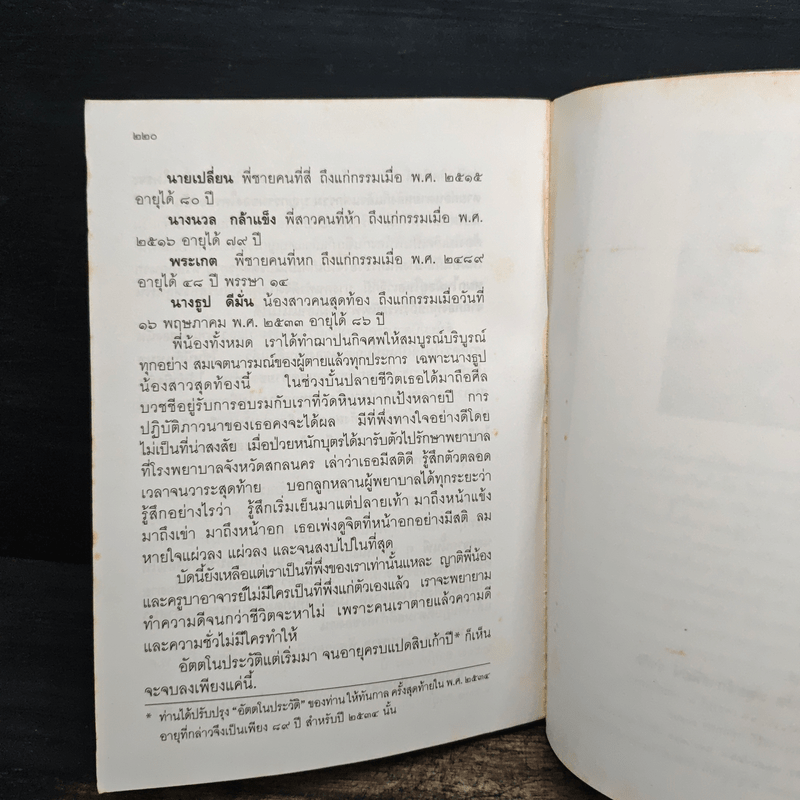 ๒๒๐
นายเปลี่ยน พี่ชายคนที่สี่ ถึงแก่กรรมเมื่อ พ.ศ. ๒๕๑๕
อายุได้ ๘๐ ปี
นางนวล กล้าแข็ง พี่สาวคนที่ห้า ถึงแก่กรรมเมื่อ พ.ศ.
๒๕๑๖ อายุได้ ๗๙ ปี
พระเกต พี่ชายคนที่หก ถึงแก่กรรมเมื่อ พ.ศ. ๒๔๘๙
อายุได้ ๔๘ ปี พรรษา ๑๔
นางธูป ดีมั่น น้องสาวคนสุดท้อง ถึงแก่กรรมเมื่อวันที่
๑๖ พฤษภาคม พ.ศ. ๒๕๓๓ อายุได้ ๘๖ ปี
พี่น้องทั้งหมด เราได้ทำฌาปนกิจศพให้สมบูรณ์บริบูรณ์
ทุกอย่าง สมเจตนารมณ์ของผู้ตายแล้วทุกประการ เฉพาะนางธูป
น้องสาวสุดท้องนี้ ในช่วงบั้นปลายชีวิตเธอได้มาถือศีล
บวชชีอยู่รับการอบรมกับเราที่วัดหินหมากเป้งหลายปี การ
ปฏิบัติภาวนาของเธอคงจะได้ผล มีที่พึ่งทางใจอย่างดีโดย
ไม่เป็นที่น่าสงสัย เมื่อป่วยหนักบุตรได้มารับตัวไปรักษาพยาบาล
ที่โรงพยาบาลจังหวัดสกลนคร เล่าว่าเธอมีสติดี รู้สึกตัวตลอด
เวลาจนวาระสุดท้าย บอกลูกหลานผู้พยาบาลได้ทุกระยะว่า
รู้สึกอย่างไรว่า รู้สึกเริ่มเย็นมาแต่ปลายเท้า มาถึงหน้าแข้ง
มาถึงเข่า มาถึงหน้าอก เธอเพ่งดูจิตที่หน้าอกอย่างมีสติ ลม
หายใจแผ่วลง แผ่วลง และจนสงบไปในที่สุด
บัดนี้ยังเหลือแต่เราเป็นที่พึ่งของเราเท่านั้นแหละ ญาติพี่น้อง
และครูบาอาจารย์ไม่มีใครเป็นที่พึ่งแก่ตัวเองแล้ว เราจะพยายาม
ทำความดีจนกว่าชีวิตจะหาไม่ เพราะคนเราตายแล้วความดี
และความชั่วไม่มีใครทำให้
อัตตโนประวัติแต่เริ่มมา จนอายุครบแปดสิบเก้าปี* ก็เห็น
จะจบลงเพียงแค่นี้.
* ท่านได้ปรับปรุง “อัตตโนประวัติ” ของท่าน ให้ทันกาล ครั้งสุดท้ายใน พ.ศ. ๒๕๓๔
อายุที่กล่าวจึงเป็นเพียง ๘๙ ปี สำหรับปี ๒๕๓๔ นั้น